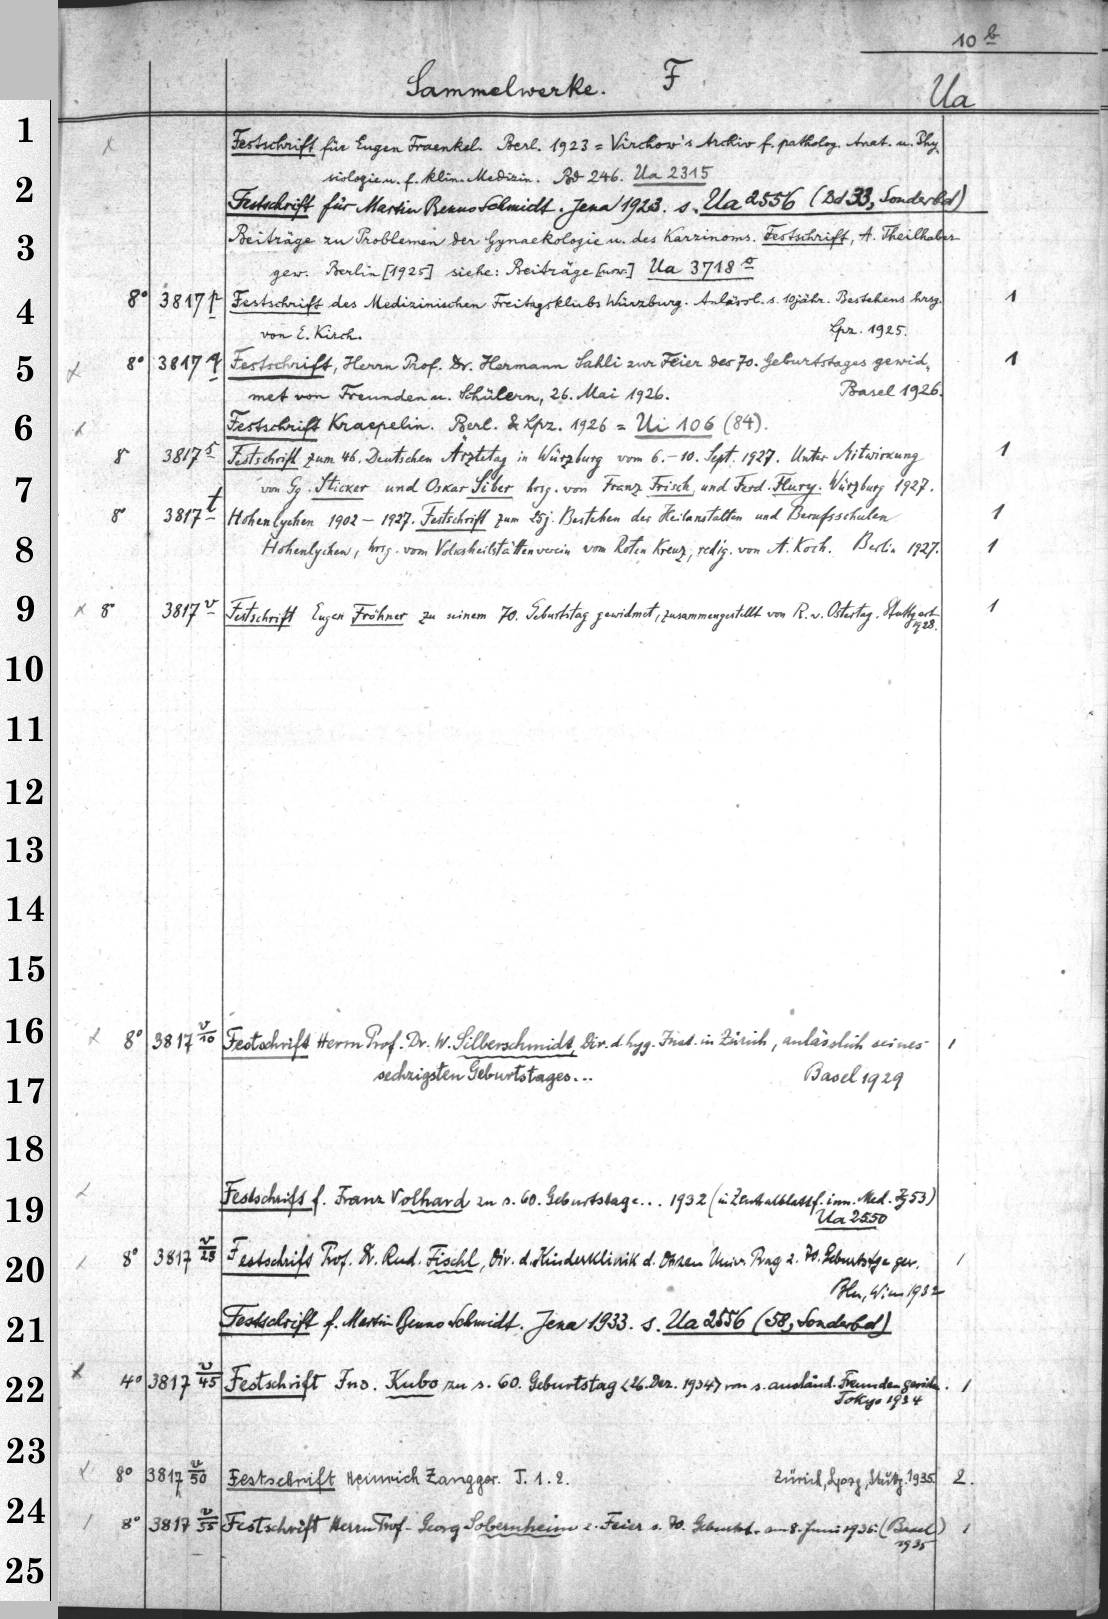 10 b
Sammelwerke. F
Ua
1
Festschrift für Eugen Fraenkel. Berl. 1923 = Virchow's Archiv f. patholog. Anat. u. Phy
siologie u. f. klin. Medizin. Bd 246. Ua 2315
2
Festschrift für Martin Benno Schmidt. Jena 1923. s. Ua 2556 (Bd 33, Sonderbd)
3
Beiträge zu Problemen der Gynaekologie u. des Karzinoms. Festschrift, A. Theilhaber
gew. Berlin [1925] siehe: Beiträge [usw.] Ua 3718
4
8° 3817 p Festschrift des Medizinischen Freitagsklubs Würzburg. Anlässl. s. 10jähr. Bestehens hrsg. 1
von E. Kirch. Lpz. 1925.
5
8° 3817 q Festschrift, Herrn Prof. Dr. Hermann Sahli zur Feier des 70. Geburtstages gewid, 1
met von Freunden u. Schülern, 26. Mai 1926. Basel 1926.
6
Festschrift Kraepelin. Berl. & Lpz. 1926 = Ui 106 (84).
8 3817 s Festschrift zum 46. Deutschen Ärztetag in Würzburg vom 6.–10. Sept. 1927. Unter Mitwirkung 1
7
von Gg. Sticker und Oskar Siber hrsg. von Franz Frisch und Ferd. Flury. Würzburg 1927.
8 3817 t Hohenlychen 1902–1927. Festschrift zum 25j. Bestehen der Heilanstalten und Berufsschulen 1
8
Hohenlychen, hrsg. vom Volksheilstättenverein vom Roten Kreuz, redig. von A. Koch. Berlin 1927. 1
9
8 3817 v Festschrift Eugen Fröhner zu seinem 70. Geburtstag gewidmet, zusammengestellt von R. v. Ostertag. Stuttgart 1
1928.
10
11
12
13
14
15
16
8° 3817 v/10 Festschrift Herrn Prof. Dr. W. Silberschmidt, Dir. d. hyg. Inst. in Zürich, anlässlich seines 1
17
sechzigsten Geburtstages... Basel 1929
18
19
Festschrift f. Franz Volhard zu s. 60. Geburtstage... 1932 (in Zentralblatt f. inn. Med. Jg 53)
Ua 2550
20
8° 3817 v/28 Festschrift Prof. Dr. Rud. Fischl, Dir. d. Kinderklinik d. Univ. Prag z. 70. Geburtstge gew. 1
Bln, Wien 1932
21
Festschrift f. Martin Benno Schmidt. Jena 1933. s. Ua 2556 (58, Sonderbd)
22
4° 3817 v/45 Festschrift Ino. Kubo zu s. 60. Geburtstag (26. Dez. 1934) von s. ausländ. Freunden gewidm. 1
Tokyo 1934
23
8° 3817 v/50 Festschrift Heinrich Zangger. T. 1. 2. Zürich, Lpzg, Stuttg. 1935. 2.
24
8° 3817 v/55 Festschrift Herrn Prof. Georg Sobernheim z. Feier s. 70. Geburtst. am 8. Juni 1935. (Basel) 1
1935
25